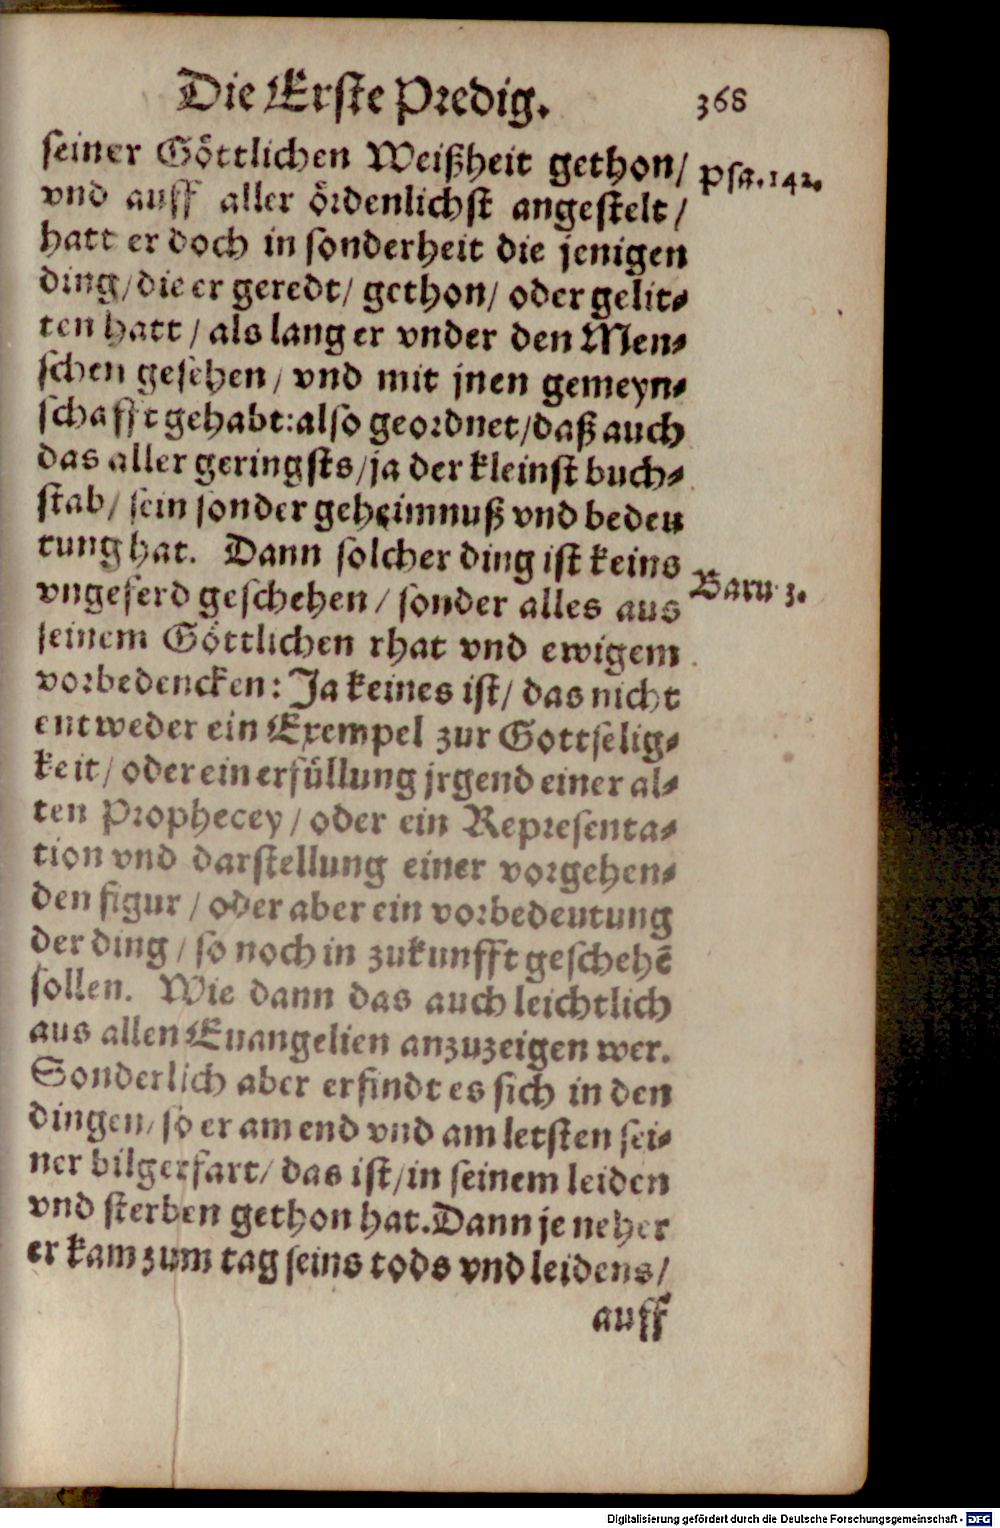 Die Erste Predig. 368
seiner Göttlichen Weißheit gethon/ Psa. 142.
vnd auff aller ördenlichst angestelt/
hatt er doch in sonderheit die jenigen
ding/ die er geredt/ gethon/ oder gelit-
ten hatt/ als lang er vnder den Men-
schen gesehen/ vnd mit jnen gemeyn-
schafft gehabt: also geordnet/ daß auch
das aller geringsts/ ja der kleinst buch-
stab/ sein sonder geheimnuß vnd bedeu
tung hat. Dann solcher ding ist keins
vngeferd geschehen/ sonder alles aus Baru 3.
seinem Göttlichen rhat vnd ewigem
vorbedencken: Ja keines ist/ das nicht
entweder ein Exempel zur Gottselig-
keit/ oder ein erfüllung jrgend einer al-
ten Prophecey/ oder ein Representa-
tion vnd darstellung einer vorgehen-
den figur/ oder aber ein vorbedeutung
der ding/ so noch in zukunfft geschehē
sollen. Wie dann das auch leichtlich
aus allen Euangelien anzuzeigen wer.
Sonderlich aber erfindt es sich in den
dingen/ so er am end vnd am letsten sei-
ner bilgerfart/ das ist/ in seinem leiden
vnd sterben gethon hat. Dann je neher
er kam zum tag seins tods vnd leidens/
auff
Digitalisierung gefördert durch die Deutsche Forschungsgemeinschaft - DFG